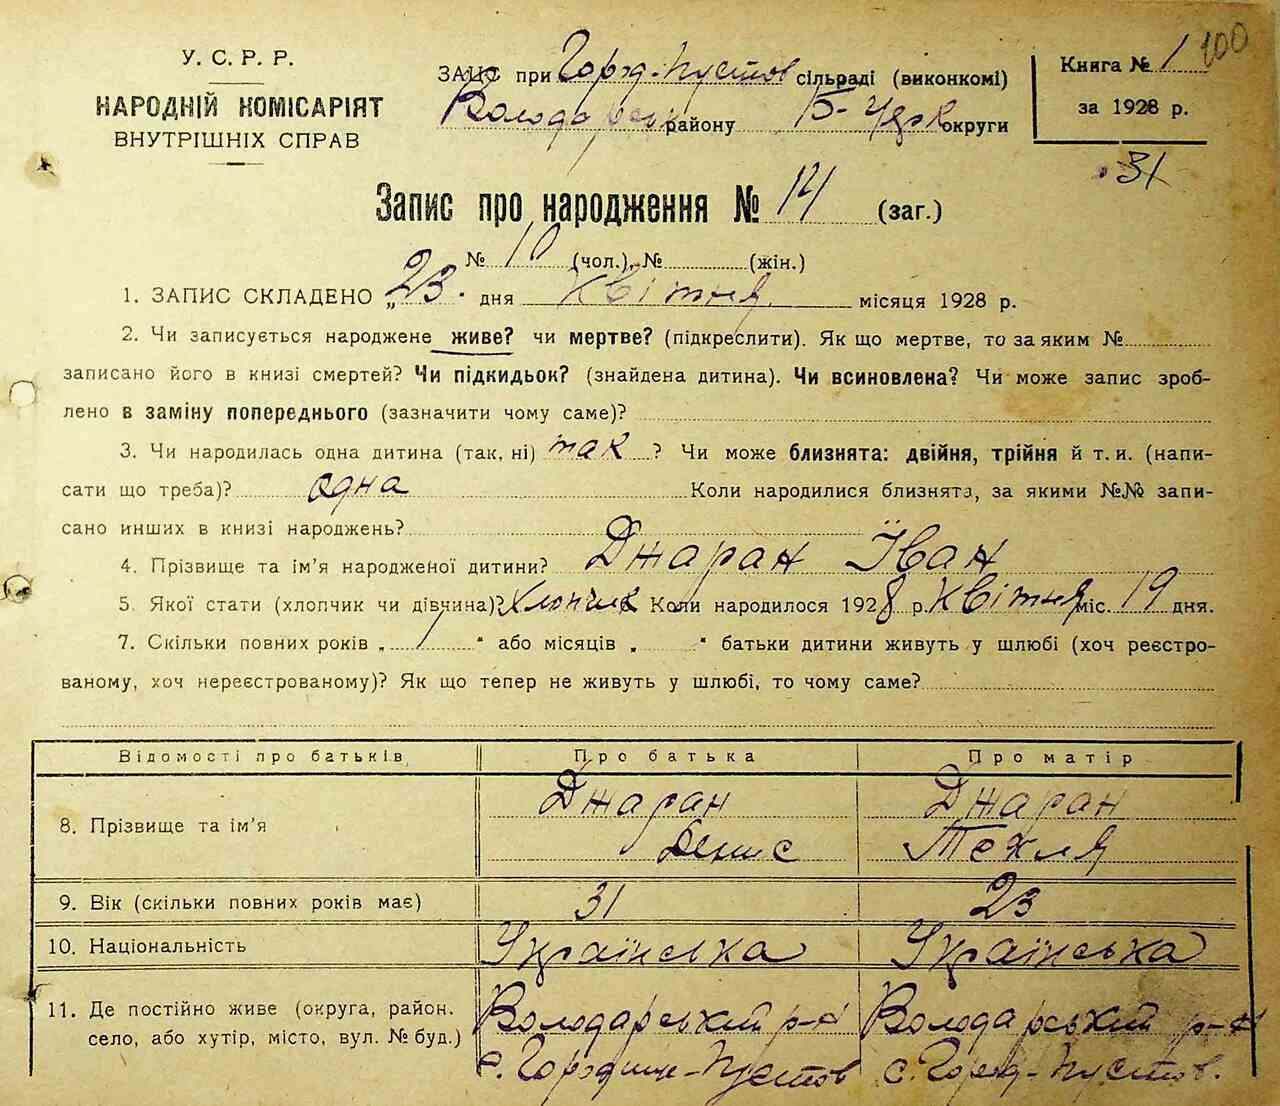 У. С. Р. Р.
НАРОДНІЙ КОМІСАРІЯТ
ВНУТРІШНІХ СПРАВ
ЗАГС при Город-Пустов сільраді (виконкомі)
Володарськ району Б-Церк округи
Книга № 1
за 1928 р.
100
31
Запис про народження № 14 (заг.)
№ 10 (чол.), № (жін.)
1. ЗАПИС СКЛАДЕНО „23" дня квітня місяця 1928 р.
2. Чи записується народжене живе? чи мертве? (підкреслити). Як що мертве, то за яким №
записано його в книзі смертей? Чи підкидьок? (знайдена дитина). Чи всиновлена? Чи може запис зроб-
лено в заміну попереднього (зазначити чому саме)?
3. Чи народилась одна дитина (так, ні) так ? Чи може близнята: двійня, трійня й т. и. (напи-
сати що треба)? одна Коли народилися близнята, за якими №№ запи-
сано инших в книзі народжень?
4. Прізвище та ім'я народженої дитини? Джаран Їван
5. Якої стати (хлопчик чи дівчина)? Хлопчик Коли народилося 1928 р. Квітня міс. 19 дня.
7. Скільки повних років „ 1 " або місяців „ " батьки дитини живуть у шлюбі (хоч реєстро-
ваному, хоч нереєстрованому)? Як що тепер не живуть у шлюбі, то чому саме?
Відомості про батьків Про батька Про матір
8. Прізвище та ім'я Джаран Денис Джаран Техля
9. Вік (скільки повних років має) 31 23
10. Національність Українська Українська
11. Де постійно живе (округа, район. Володарський р-н Володарський р-н
село, або хутір, місто, вул. № буд.) с. Городище-Пустов с. Город-Пустов.